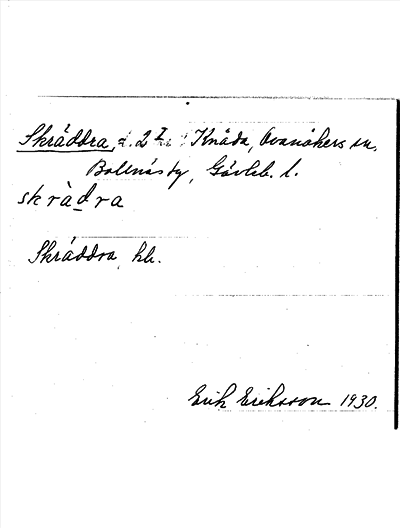 Skräddra, d. 2 Z. i Knåda, Ovanåkers sn,
Bollnäs tg, Gävleb. l.
skràdra
Skräddra, hb.
Erik Eriksson 1930.